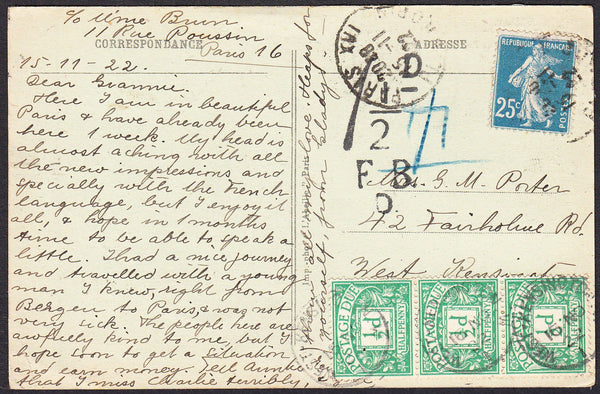 c/o Mme Brun
11 Rue Poussin
Paris 16
CORRESPONDANCE
ADRESSE
15-11-22.
Dear Grannie.
Here I am in beautiful
Paris & have already been
here 1 week. My head is
almost aching with all
the new impressions and
specially with the french
language, but I enjoy it
all, & hope in 1 months
time to be able to speak a
little. I had a nice journey
and travelled with a young
man I knew, right from
Bergen to Paris, & was not
very sick. The people here are
awfully kind to me, but I
hope soon to get a situation
and earn money. Tell Auntie
that I miss Charlie terribly,
love. Heaps for
yourself, from Gladys.
PARIS XVI
D
1
2
F B
D
REPUBLIQUE FRANÇAISE
25c
POSTES
Mrs. G. M. Porter
42 Fairholme Rd.
West Kensington
POSTAGE DUE
HALFPENNY
POSTAGE DUE
HALFPENNY
POSTAGE DUE
HALFPENNY